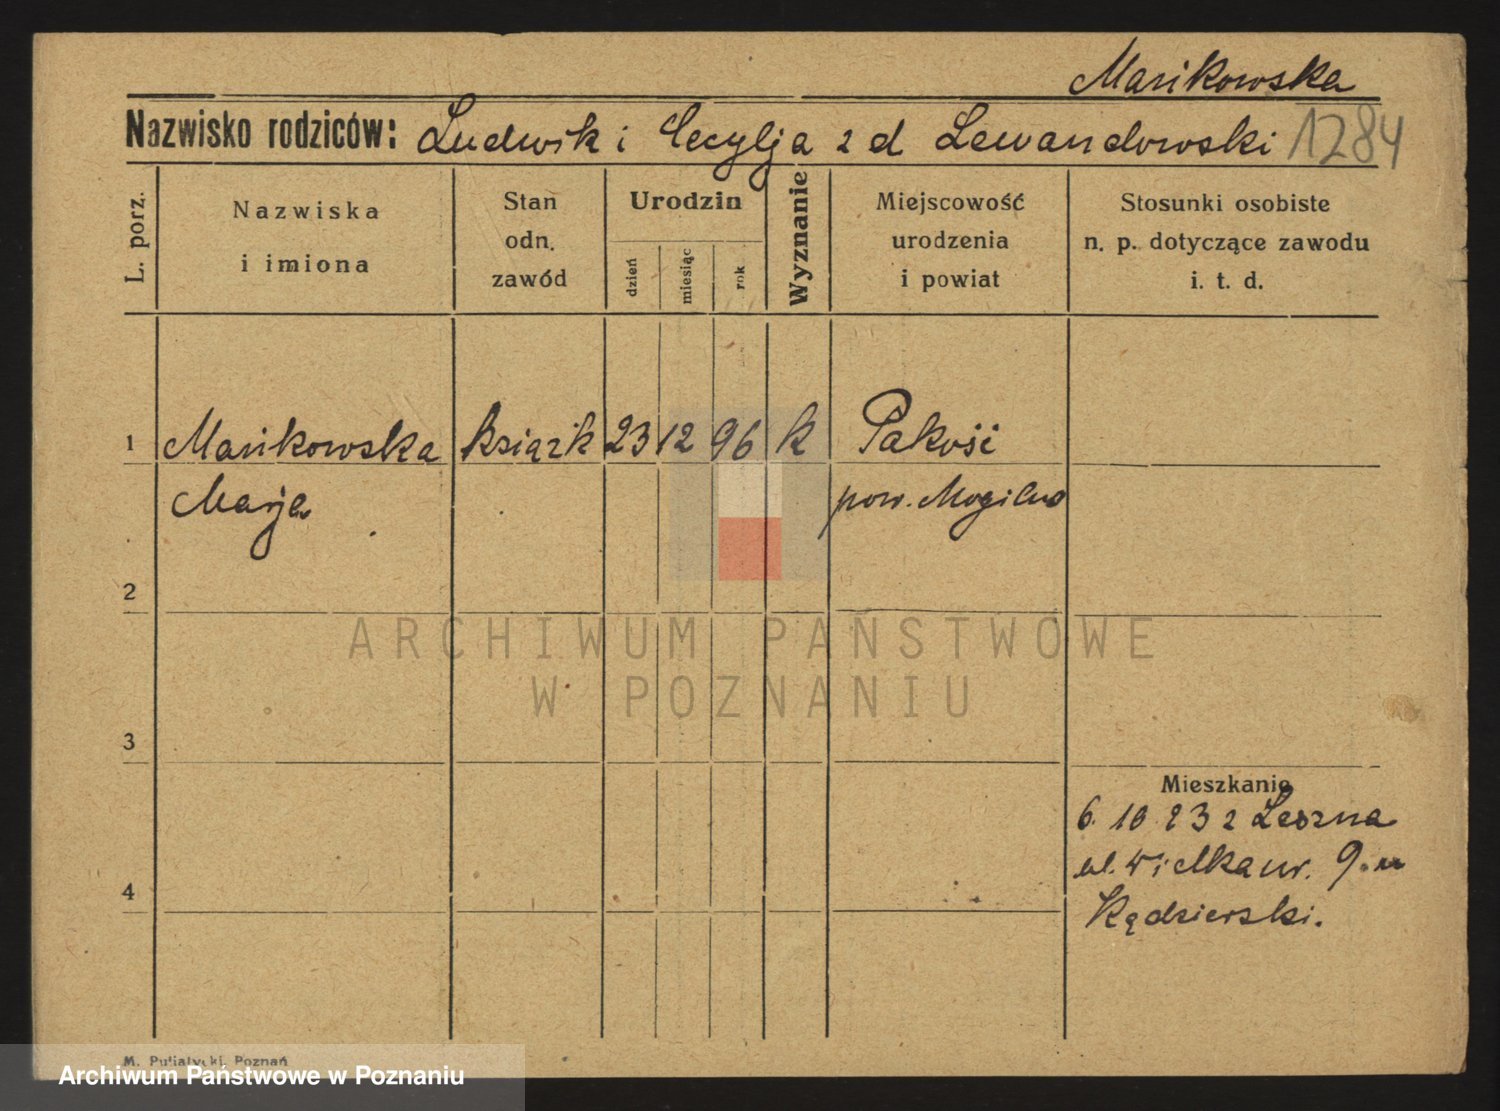 Mańkowska
Nazwisko rodziców: Ludwik i Cecylja z d Lewandowski 1284
L. porz.
Nazwiska
i imiona
Stan
odn.
zawód
Urodzin
dzień
miesiąc
rok
Wyznanie
Miejscowość
urodzenia
i powiat
Stosunki osobiste
n. p. dotyczące zawodu
i. t. d.
1 Mańkowska książk 23 12 96 k Pakość
Marja pow. Mogilno
2
3
4
Mieszkanie
6. 10 23 z Leszna
ul. Wielka nr. 9. u
Kędzierski.
ARCHIWUM PAŃSTWOWE
W POZNANIU
M. Putiatycki, Poznań
Archiwum Państwowe w Poznaniu